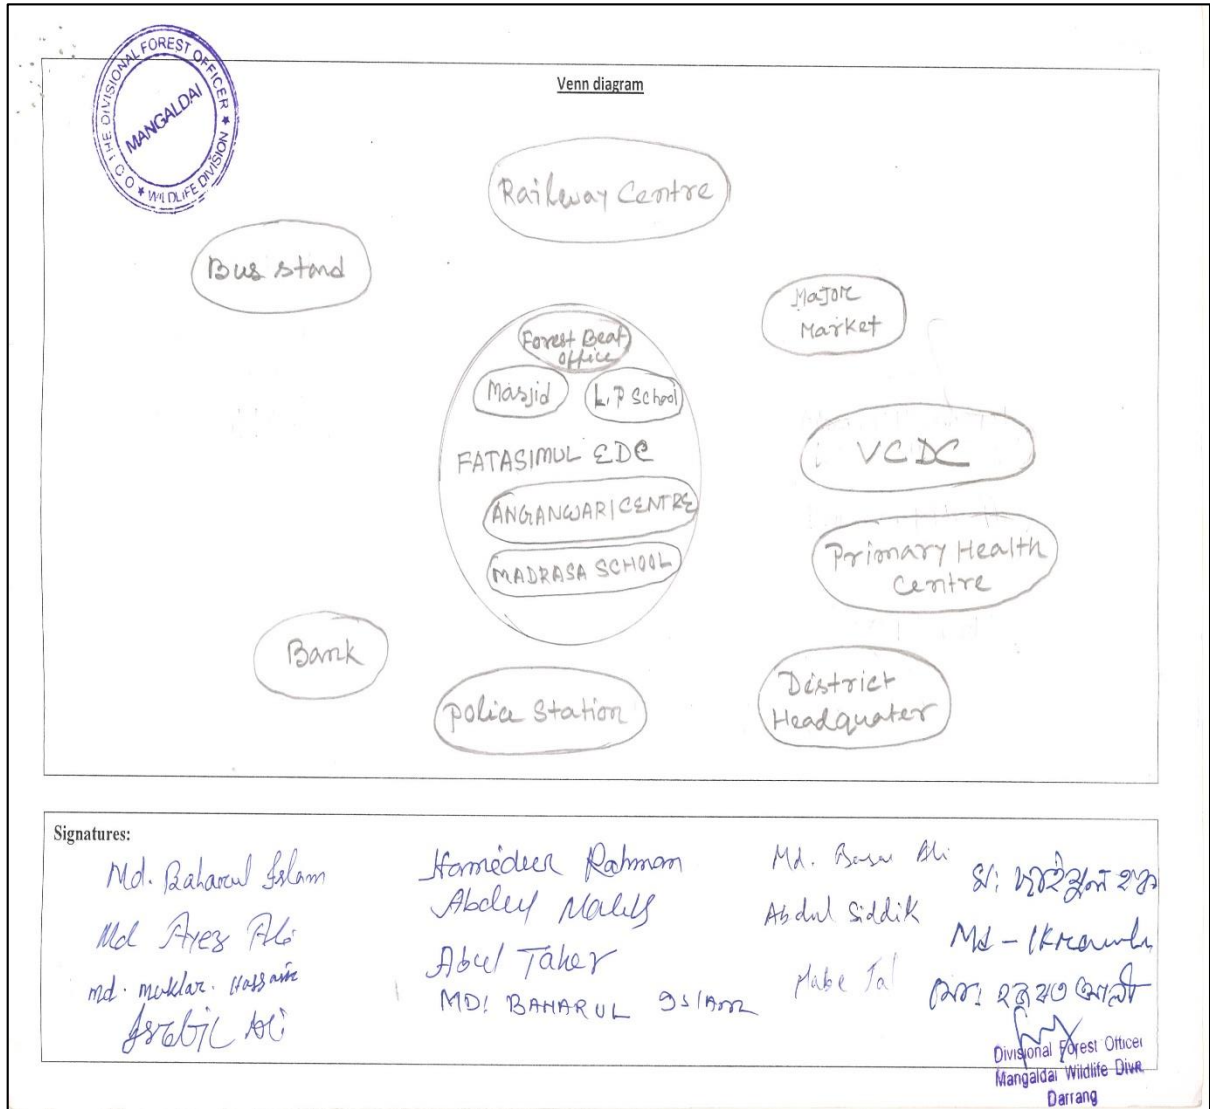 O/O THE DIVISIONAL FOREST OFFICER
★ WILDLIFE DIVISION ★
MANGALDAI
Venn diagram
Railway Centre
Bus stand
Major
Market
Forest Beat
office
Masjid
L.P School
FATASIMUL EDC
ANGANWARI CENTRE
MADRASA SCHOOL
VCDC
Primary Health
Centre
Bank
Police Station
District
Headquater
Signatures:
Md. Baharul Islam
Md Ayez Ali
md. muklar. Hassain
Ali
Hamedur Rahman
Abdul
Abul Taher
MD! BAHARUL ISlAm
Md. Ali
Abdul Siddik
Md -
Divisional Forest Officer
Mangaldai Wildlife Divn.
Darrang